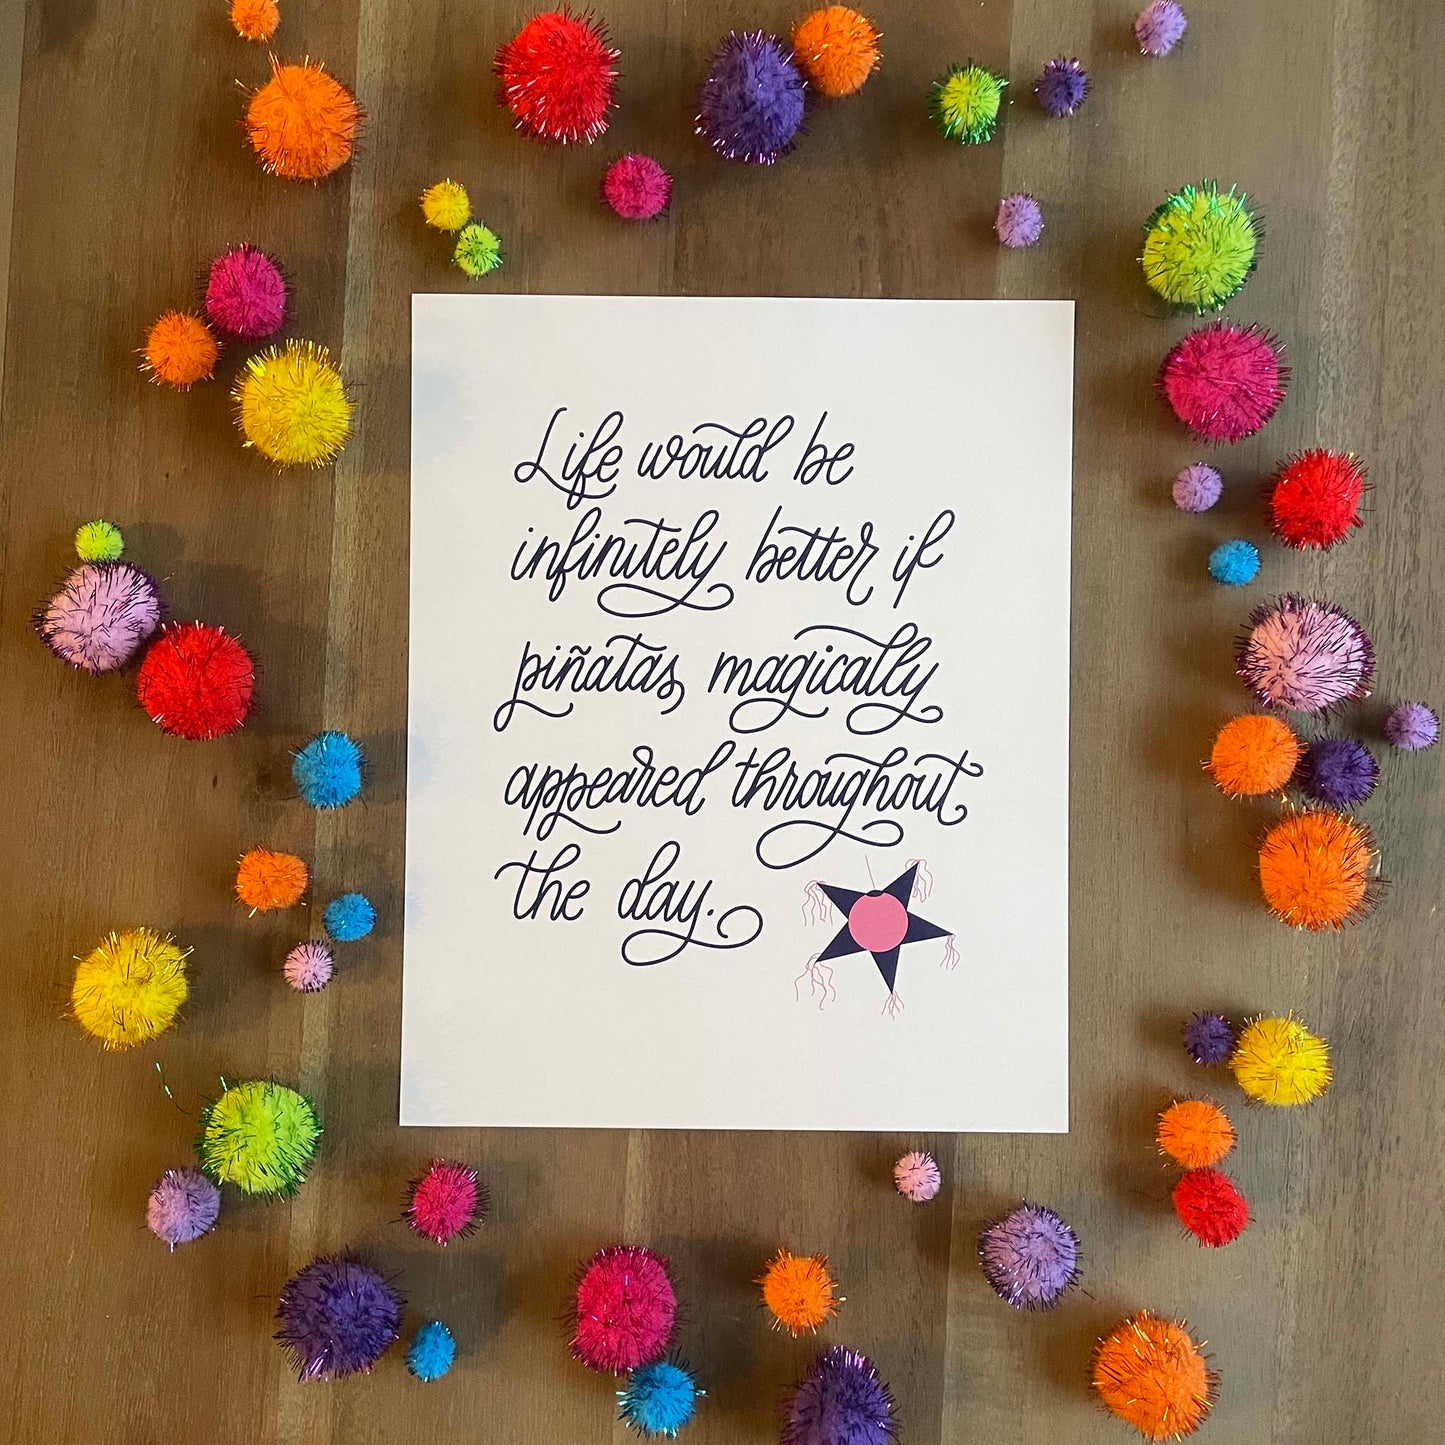 Life would be
infinitely better if
piñatas magically
appeared throughout
the day.